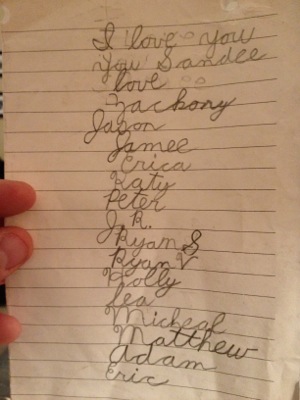 I love you
You Sandee
love
Zachony
Jason
Jamee
Erica
Katy
Peter
J.R.
Ryan S
Ryan V
Holly
Lea
Micheal
Matthew
Adam
Eric